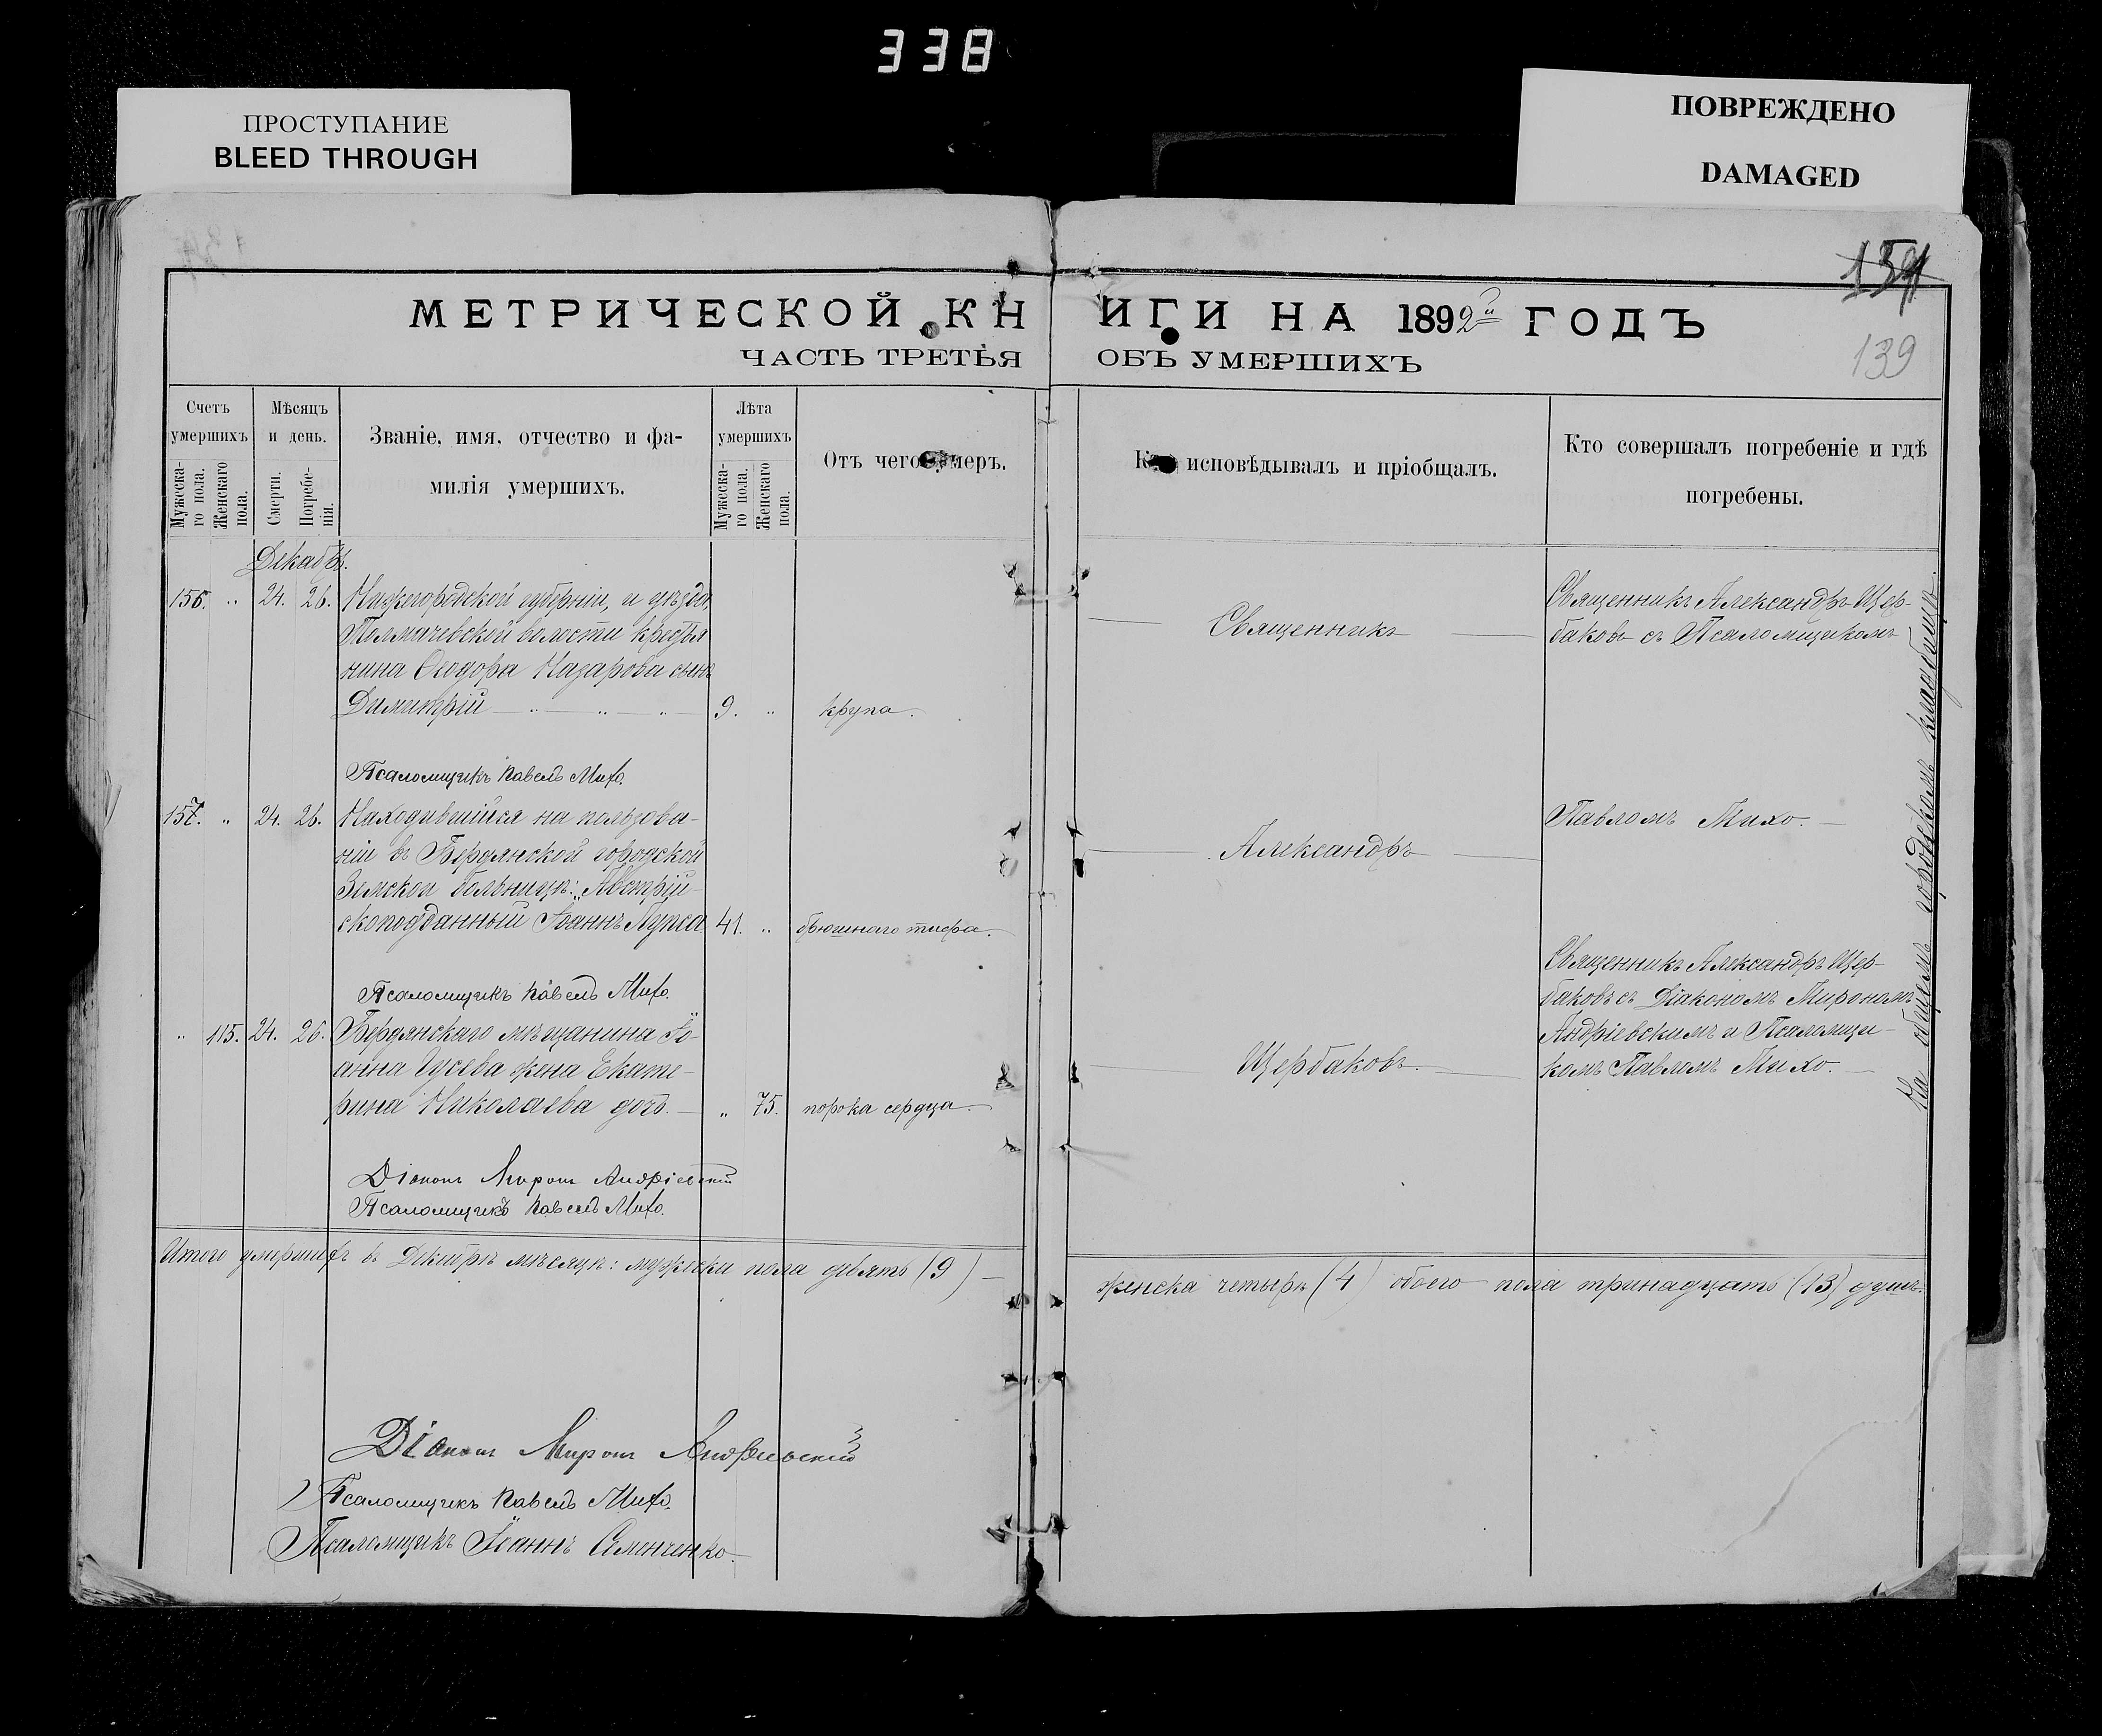 338
ПРОСТУПАНИЕ
BLEED THROUGH
ПОВРЕЖДЕНО
DAMAGED
139
МЕТРИЧЕСКОЙ КНИГИ НА 1892й ГОДЪ
ЧАСТЬ ТРЕТЬЯ ОБЪ УМЕРШИХЪ
Счетъ умершихъ
Мужескаго пола.
Женскаго пола.
Мѣсяцъ и день.
Смерти.
Погребенія.
Званіе, имя, отчество и фа-
милія умершихъ.
Лѣта умершихъ
Мужескаго пола.
Женскаго пола.
Отъ чего умеръ.
Кто исповѣдывалъ и пріобщалъ.
Кто совершалъ погребеніе и гдѣ
погребены.
Декабрь.
156. " 24. 26. Нижегородской губерніи, и уѣзда,
волости крестья
нина Ѳеодора Назарова сынъ
Димитрій 9. " крупа.
Псаломщикъ Павелъ Михо.
157. " 24. 26. Находившійся на пользова-
ніи въ Бердянской городской
Земской больницѣ: Австрій-
скоподданный Іоаннъ 41. " брюшного тифа.
Псаломщикъ Павелъ Михо.
" 115. 24. 26. Бердянскаго мѣщанина Іо-
анна Гусева жена Екате-
рина Николаева дочь. " 75. порока сердца.
Діаконъ Миронъ Андріевскій
Псаломщикъ Павелъ Михо.
Священникъ
Александръ
Щербаковъ.
Священникъ Александръ Щер-
баковъ съ Псаломщикомъ
Павломъ Михо.
Священникъ Александръ Щер-
баковъ съ Діакономъ Мирономъ
Андріевскимъ и Псаломщи-
комъ Павломъ Михо.
На общемъ городскомъ кладбищѣ.
Итого умершихъ въ Декабрѣ мѣсяцѣ: мужеска пола девять (9) —
женска четыре (4) обоего пола тринадцать (13) душъ.
Діаконъ Миронъ Андріевскій
Псаломщикъ Павелъ Михо.
Псаломщикъ Іоаннъ Семенченко.